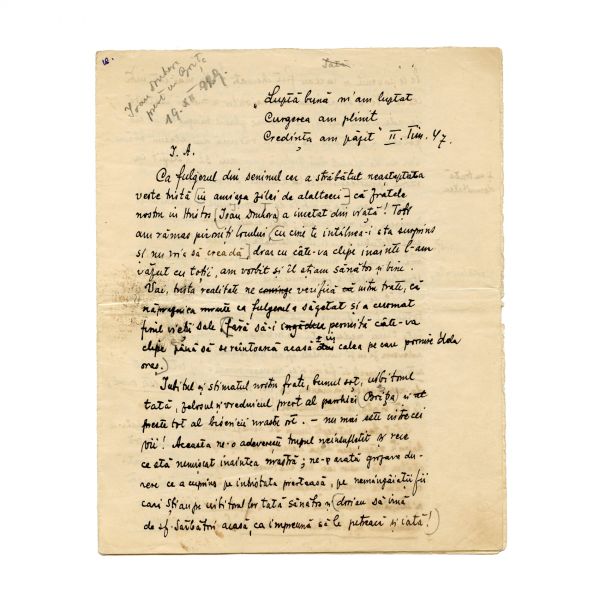 Ioan Dmbora
19. XII 929
„Luptă bună m'am luptat
Curgerea am plinit
Credința am păzit" II. Tim. 4/7.
I. A.
Ca fulgerul din seninul cer a străbătut neașteptata
veste tristă (în amiaza zilei de alaltăeri) că fratele
nostru în Hristos [Ioan a incetat din viață! Toți
am rămas pironiti locului (cu cine te intâlneai sta surprins
și nu vrea să creadă) doar cu câte-va clipe inainte l-am
văzut cu toții, am vorbit și îl știam sănătos și bine.
Vai, trista realitate ne verifică iubite frate, că
moarte ca fulgerul a săgetat si a curmat
firul vieții sale (fără să-i ingădue permită câte-va
clipe până să se reintoarcă acasă din calea pe care pornise dela
oraș.)
Iubitul și stimatul nostru frate, bunul soț, iubitorul
tată, zelosul și vrednicul preot al parohiei și
al bisericii noastre ort. – nu mai este intre cei
vii! Aceasta ne-o adeverește trupul neinsuflețit și rece
ce stă nemișcat inaintea noastră; ne-o arată grozava du-
rere ce a cuprins pe iubitota preoteasă, pe nemângăiații fii
cari știau pe iubitorul lor tată sănătos și (doriau să vină
de sf. Sărbători acasă, ca impreună să le petreacă și iată!)